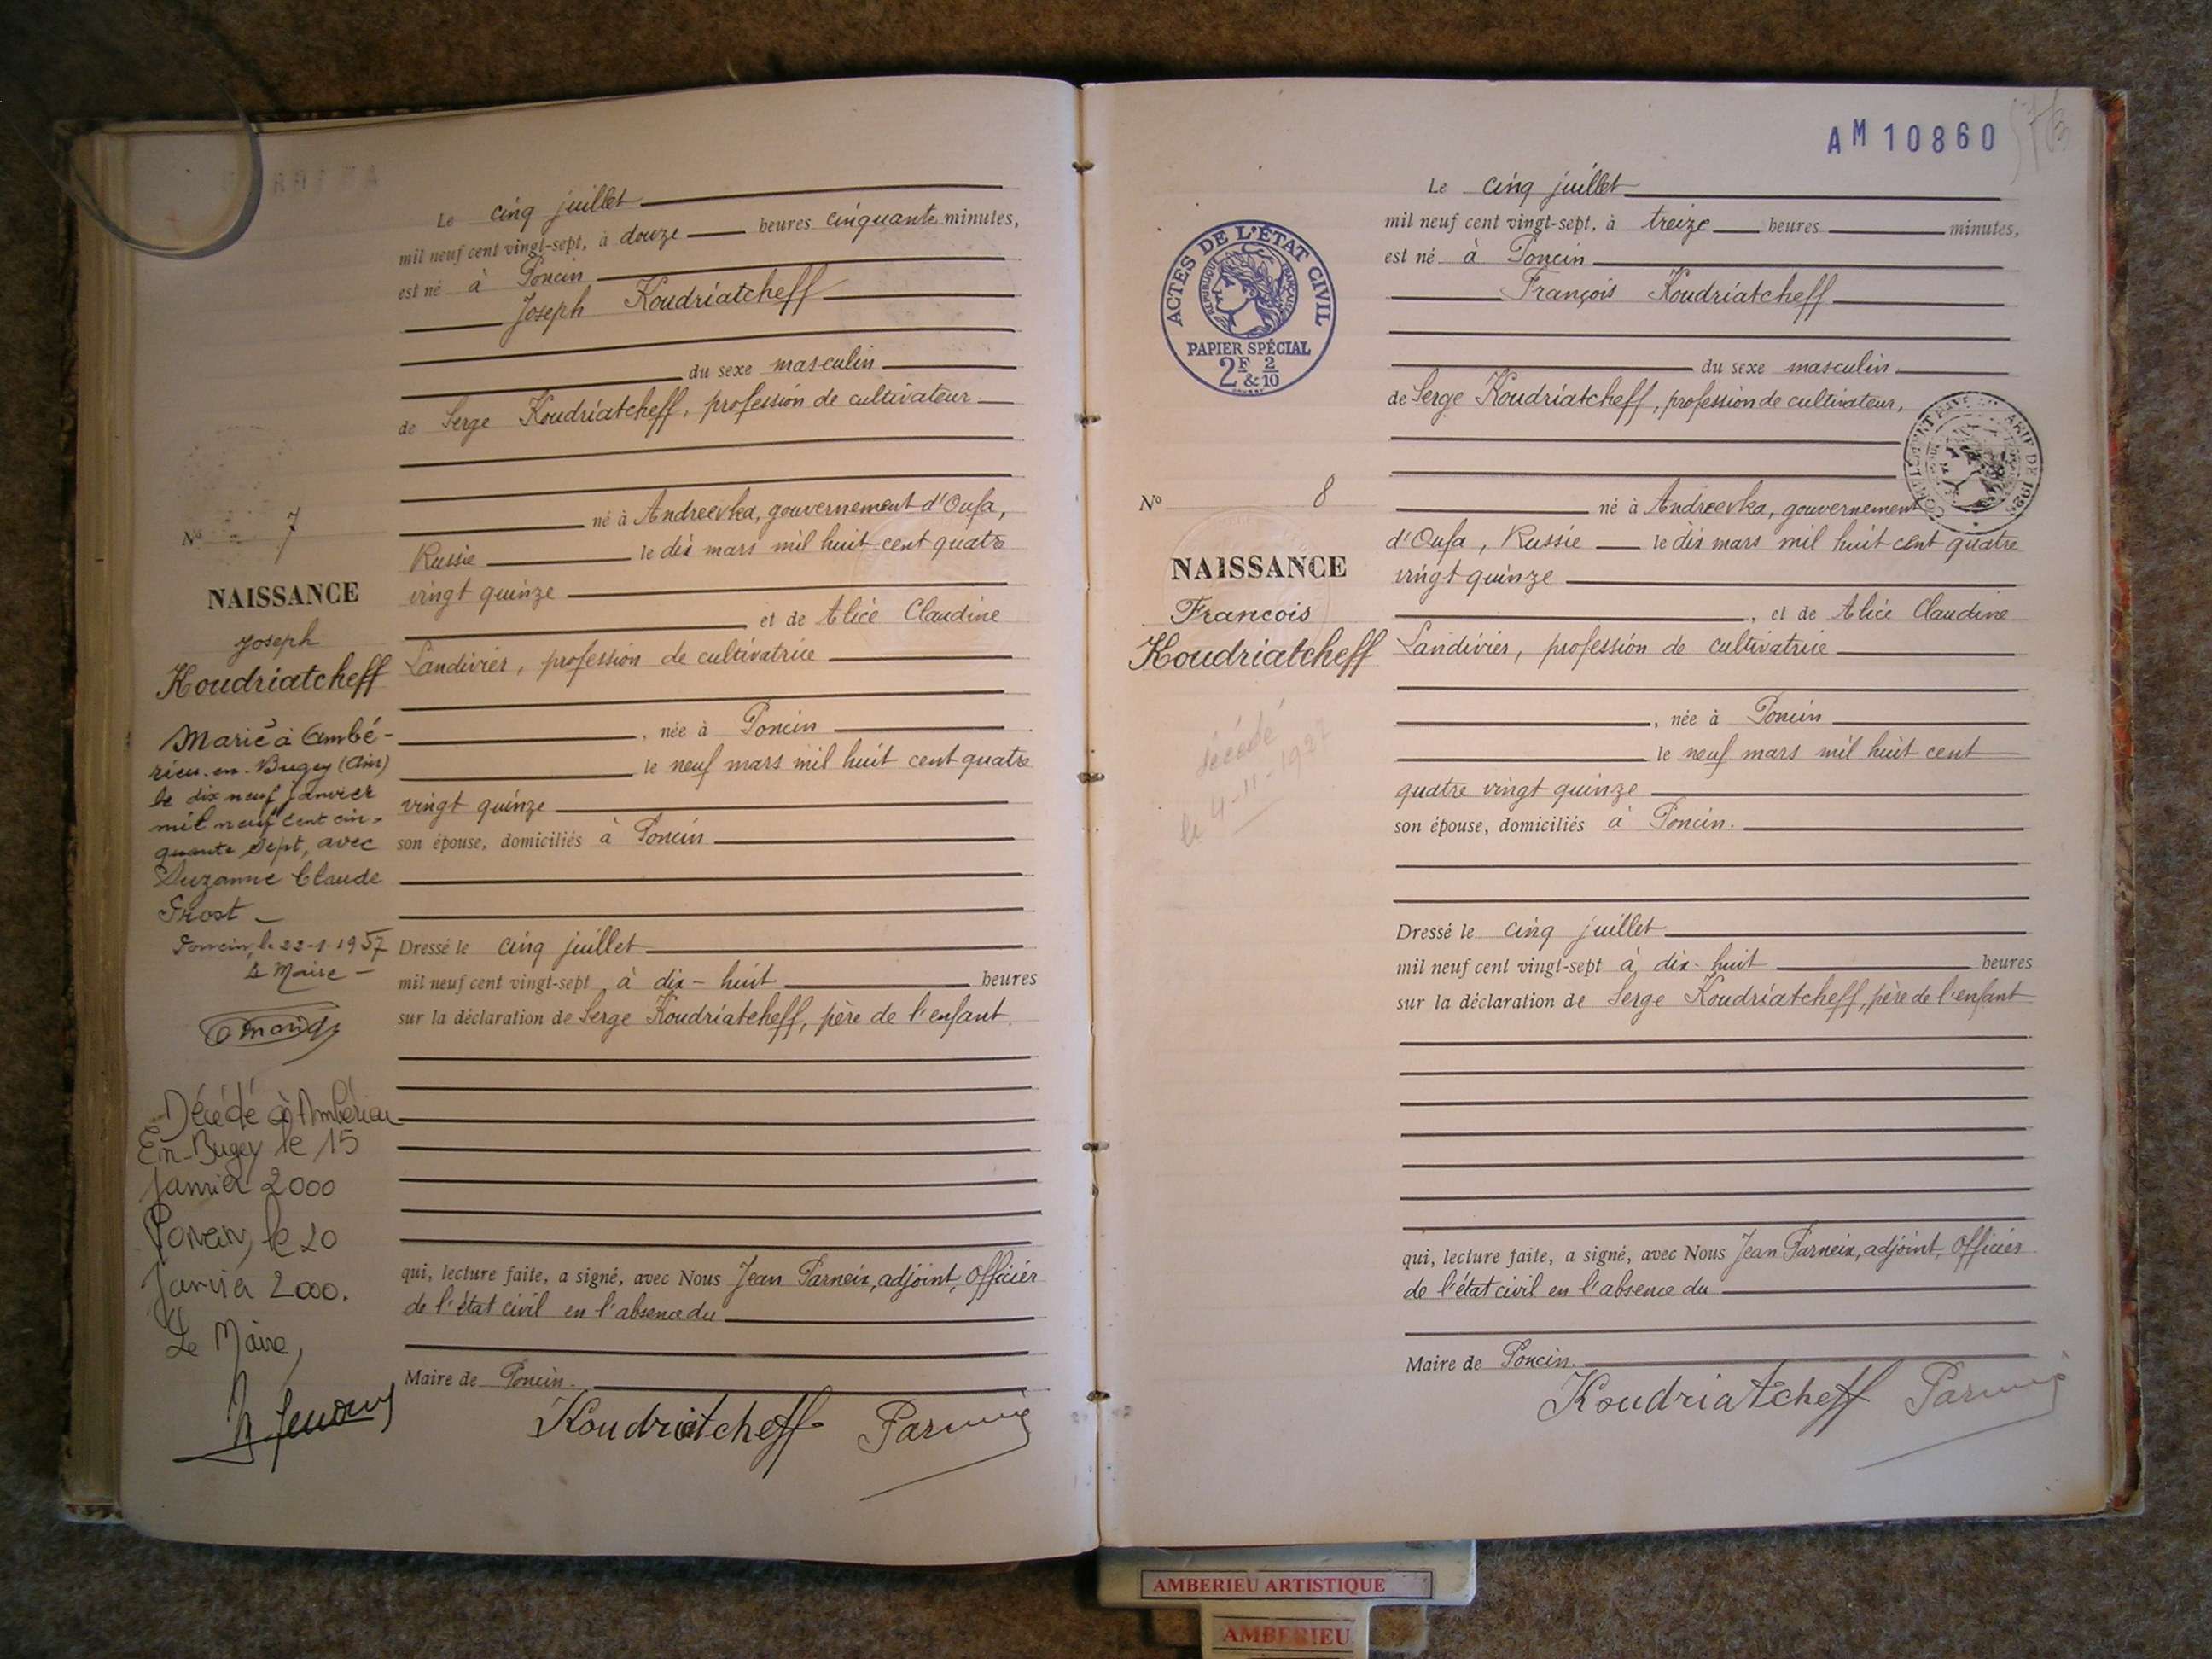 Le cinq juillet
mil neuf cent vingt-sept, à douze heures cinquante minutes,
est né à Poncin
Joseph Koudriatcheff
du sexe masculin
de Serge Koudriatcheff, profession de cultivateur
né à Andreevka, gouvernement d'Oufa,
Russie le dix mars mil huit cent quatre
vingt quinze
et de Alice Claudine
Landivier, profession de cultivatrice
, née à Poncin
le neuf mars mil huit cent quatre
vingt quinze
son épouse, domiciliés à Poncin
Dressé le cinq juillet
mil neuf cent vingt-sept, à dix-huit heures
sur la déclaration de Serge Koudriatcheff, père de l'enfant.
qui, lecture faite, a signé, avec Nous Jean Parneix, adjoint, Officier
de l'état civil en l'absence du
Maire de Poncin.
Koudriatcheff Parneix
No 7
NAISSANCE
Joseph
Koudriatcheff
Marié à Ambé-
rieu-en-Bugey (Ain)
le dix neuf janvier
mil neuf cent cin-
quante sept, avec
Suzanne Claude
Prost
Poncin, le 22-1-1957
Le Maire
Décédé à Ambérieu
En-Bugey le 15
Janvier 2000
Poncin, le 20
Janvier 2000.
Le Maire,
AM 10860
ACTES DE L'ÉTAT CIVIL
RÉPUBLIQUE FRANÇAISE
PAPIER SPÉCIAL
2F & 2/10
Le cinq juillet
mil neuf cent vingt-sept, à treize heures minutes,
est né à Poncin
François Koudriatcheff
du sexe masculin
de Serge Koudriatcheff, profession de cultivateur,
né à Andreevka, gouvernement
d'Oufa, Russie le dix mars mil huit cent quatre
vingt quinze
, et de Alice Claudine
Landivier, profession de cultivatrice
, née à Poncin
le neuf mars mil huit cent
quatre vingt quinze
son épouse, domiciliés à Poncin.
Dressé le cinq juillet
mil neuf cent vingt-sept à dix-huit heures
sur la déclaration de Serge Koudriatcheff, père de l'enfant
qui, lecture faite, a signé, avec Nous Jean Parneix, adjoint, Officier
de l'état civil en l'absence du
Maire de Poncin.
Koudriatcheff Parneix
No 8
NAISSANCE
Francois
Koudriatcheff
décédé
le 4-11-1927
AMBERIEU ARTISTIQUE
AMBERIEU